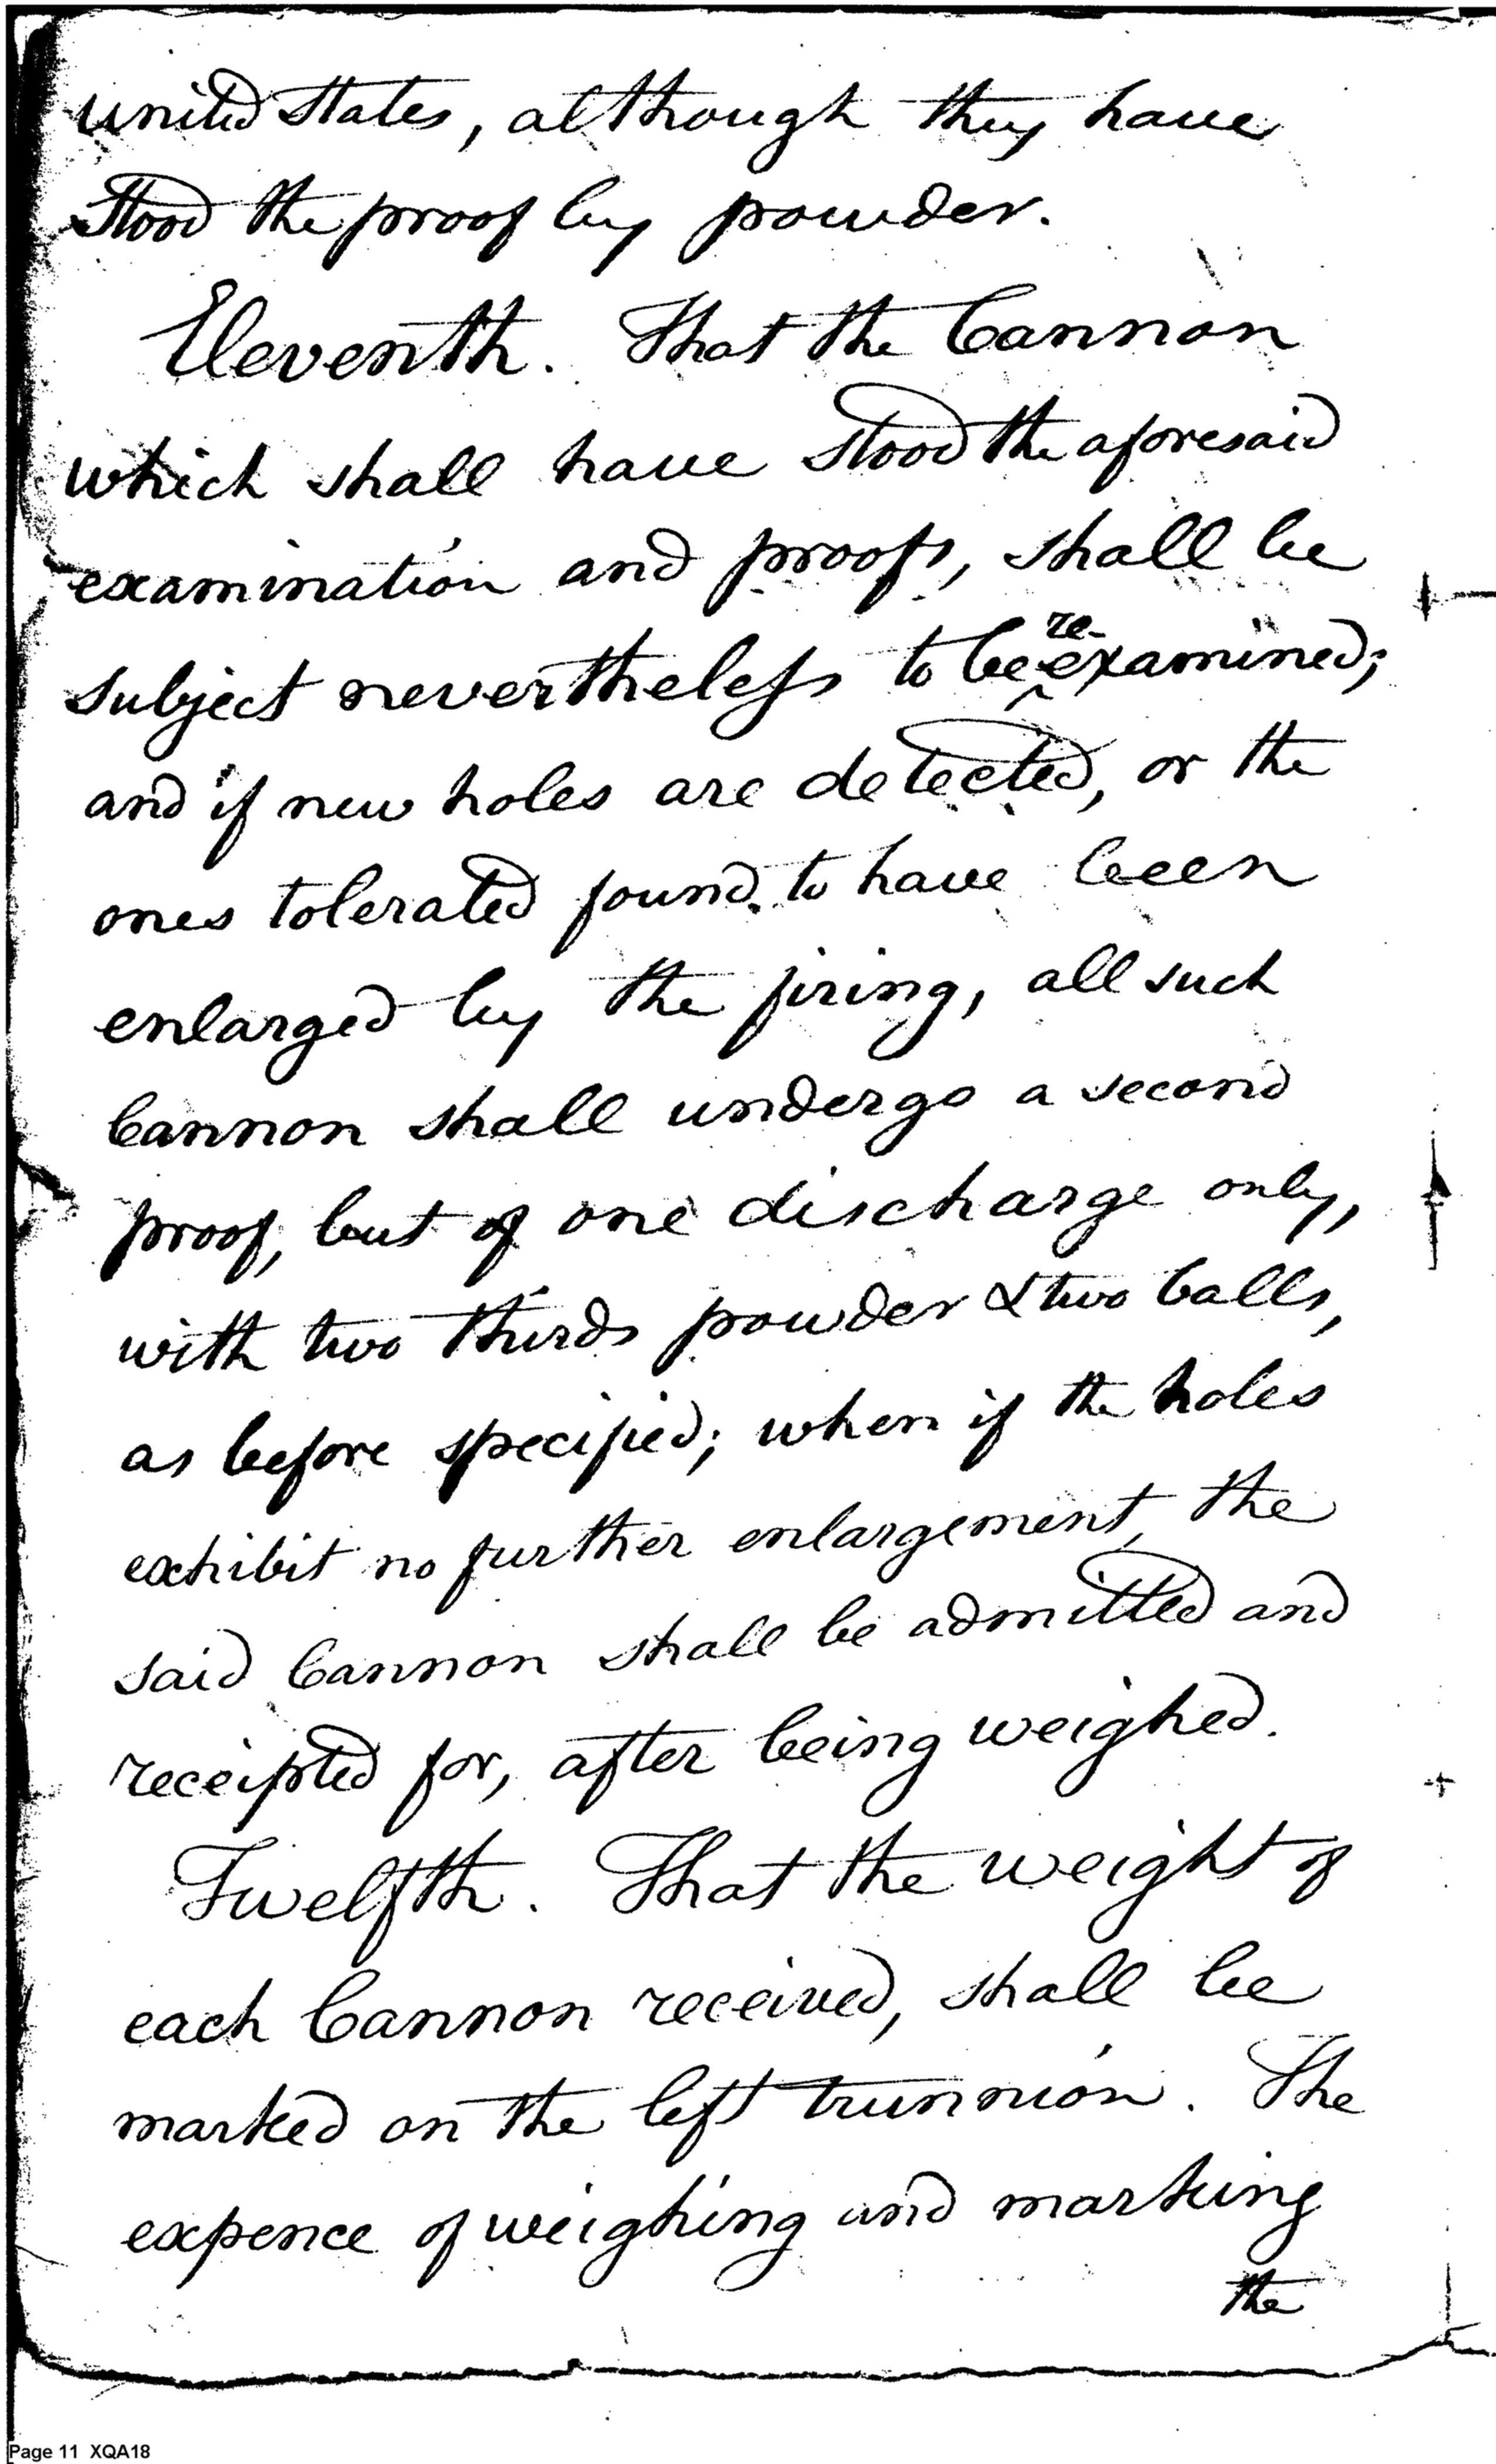 United States, although they have
stood the proof by powder.
Eleventh. That the Cannon
which shall have stood the aforesaid
examination and proofs, shall be
subject nevertheless to be re-examined;
and if new holes are detected, or the
ones tolerated found to have been
enlarged by the firing, all such
Cannon shall undergo a second
proof, but of one discharge only,
with two thirds powder & two balls,
as before specified; when if the holes
exhibit no further enlargement, the
said Cannon shall be admitted and
receipted for, after being weighed.
Twelfth. That the weight of
each Cannon received, shall be
marked on the left trunnion. The
expence of weighing and marking
the
Page 11 XQA18